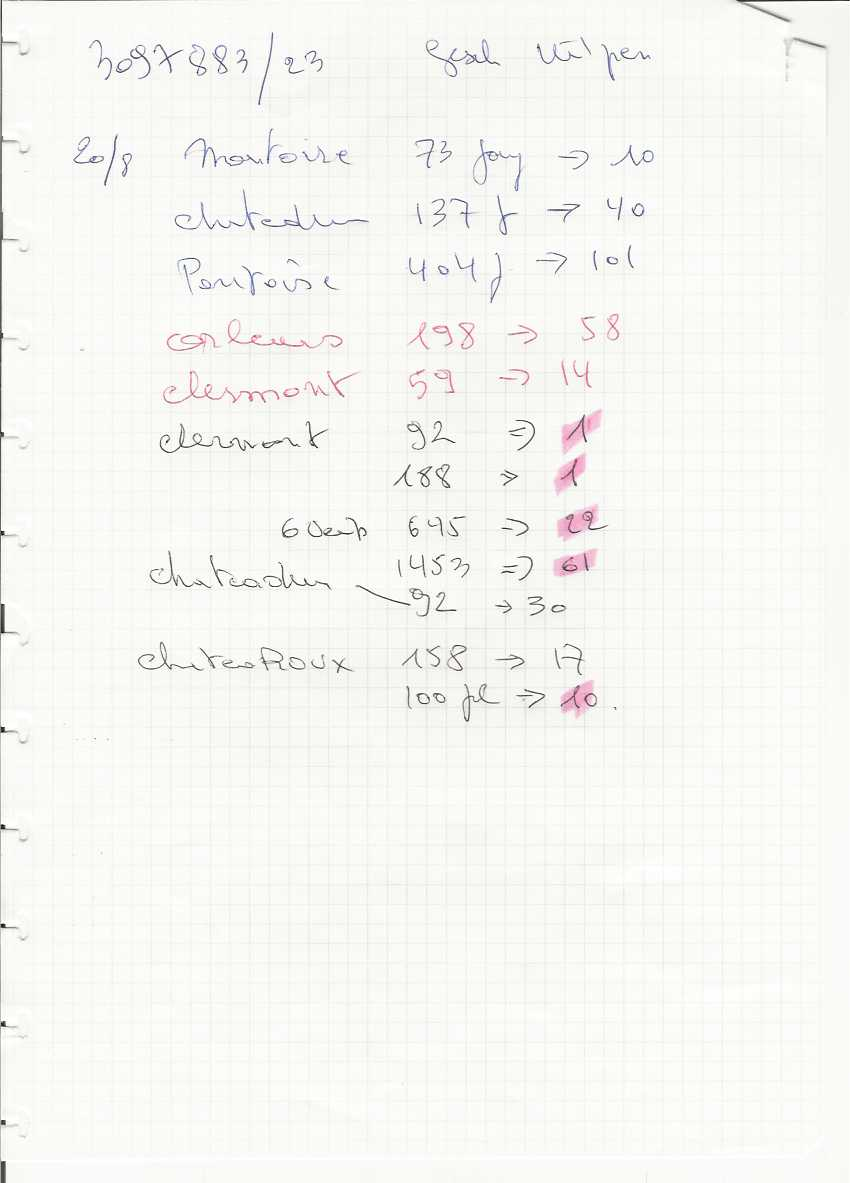 3097883/23
20/8 Montoire 73 → 10
chateadun 137 f → 40
Pontoise 404 f → 101
orleans 198 → 58
clermont 59 → 14
clermont 92 => 1
188 → 1
645 => 22
chateadun 1453 => 61
92 → 30
chateaROUX 158 → 17
100 pl => 10.